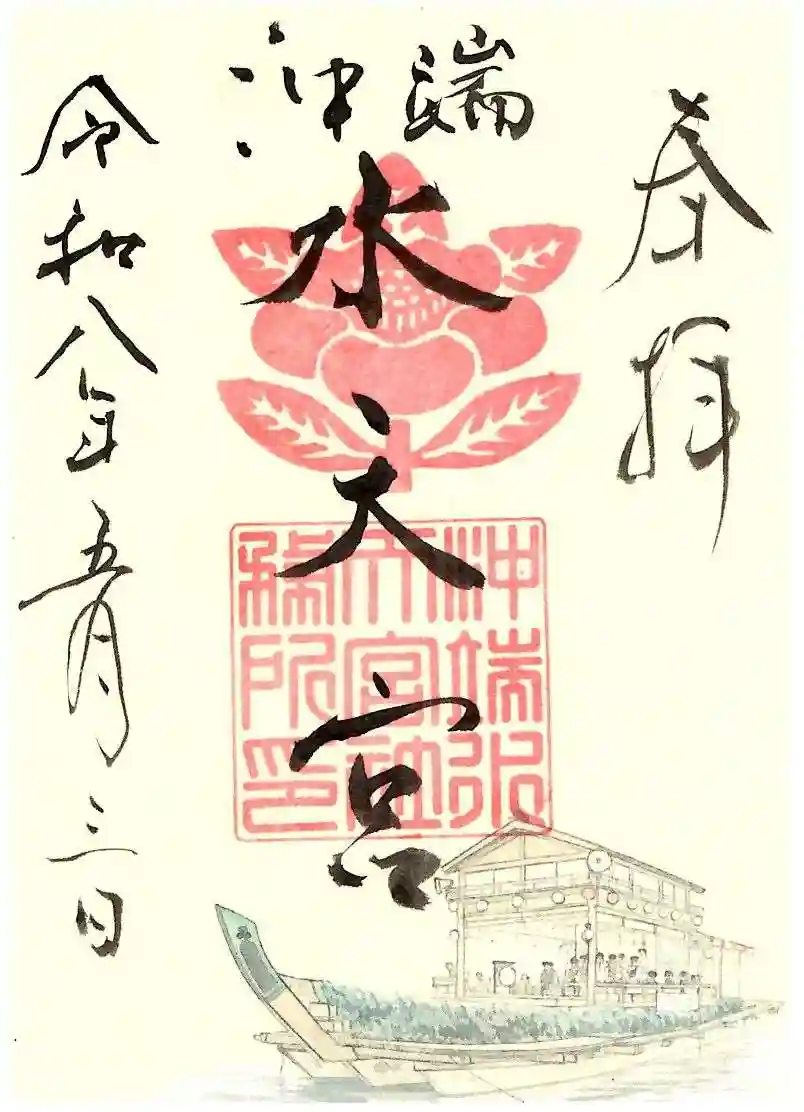 奉拝
沖端
水天宮
沖端水
天宮社
務所印
令和八年五月三日